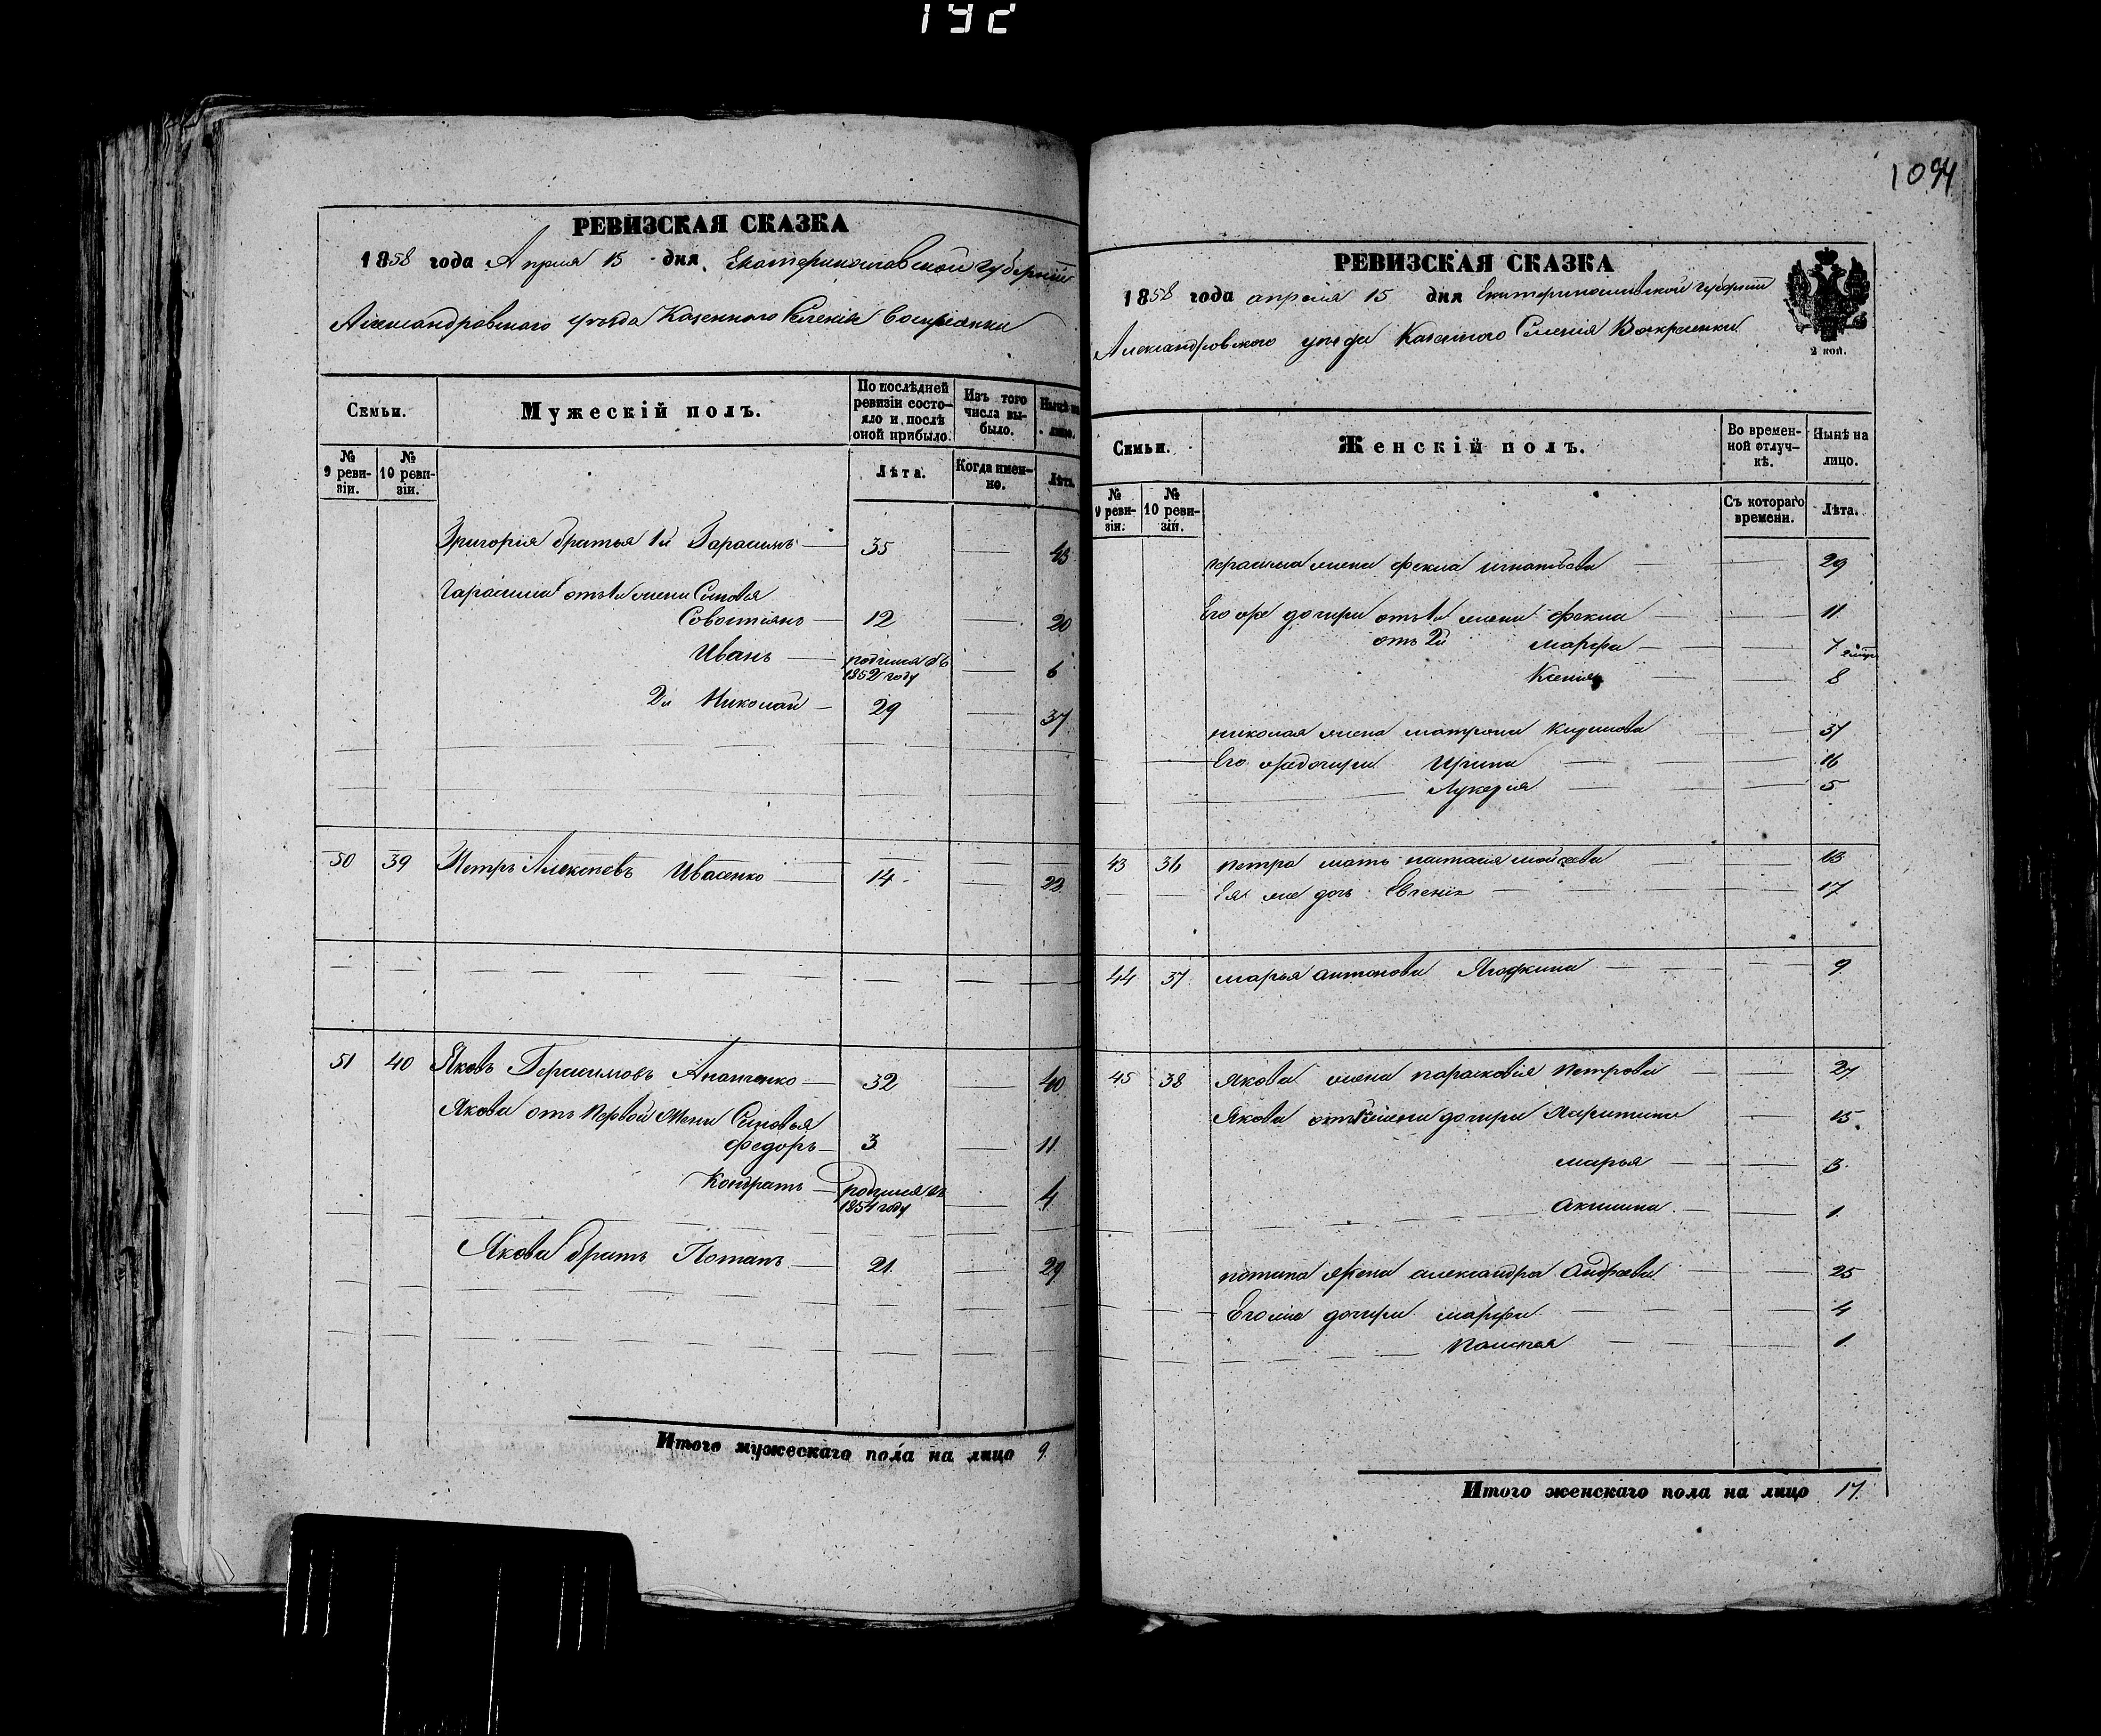 192
1094
РЕВИЗСКАЯ СКАЗКА
1858 года Апреля 15 дня Екатеринославской губернiи
Александровского уѣзда Казенного Селенiя Воскресенки
Семьи.
Мужескiй полъ.
По послѣдней ревизiи состо-
яло и послѣ
оной прибыло.
Изъ того
числа вы-
было.
Нынѣ на
лицо.
№
9 реви-
зiи.
№
10 реви-
зiи.
Лѣта.
Когда имен-
но.
Лѣта.
Григорiя братья 1й Гарасимъ 35 43
Гарасима отъ 1й жены Сыновья
Совостiянъ 12 20
Иванъ родился въ
1852 году 6
2й Николай 29 37
50 39 Петръ Алексѣевъ Ивасенко 14 22
51 40 Яковъ Герасимовъ 32 40
Якова отъ первой жены Сыновья
Федоръ 3 11
Кондратъ родился въ
1854 году 4
Якова братъ Потапъ 21 29
Итого мужескаго пола на лицо 9
РЕВИЗСКАЯ СКАЗКА
1858 года апреля 15 дня Екатеринославской губернiи
Александровского уѣзда Казенного Селенiя Воскресенки
2 коп.
Семьи.
Женскiй полъ.
Во времен-
ной отлуч-
кѣ.
Нынѣ на
лицо.
№
9 реви-
зiи.
№
10 реви-
зiи.
Съ котораго
времени.
Лѣта.
герасима жена фекла игнатьева 29
Его же дочири отъ 1й жены фекла 11
отъ 2й марфа 7
Ксенiя 8
николая жена матрона 37
Его же дочири Ирина 16
Лукерiя 5
43 36 петра мать настасiя мойсѣева
Ея же дочь Евгенiя 17
44 37 марья антонова Ягодкина 9
45 38 якова жена парасковiя петрова 27
Якова отъ 1й жены дочири Харитина 15
марья 3
акилина 1
потапа жена александра андрѣева 25
Его же дочири марфа 4
1
Итого женскаго пола на лицо 17